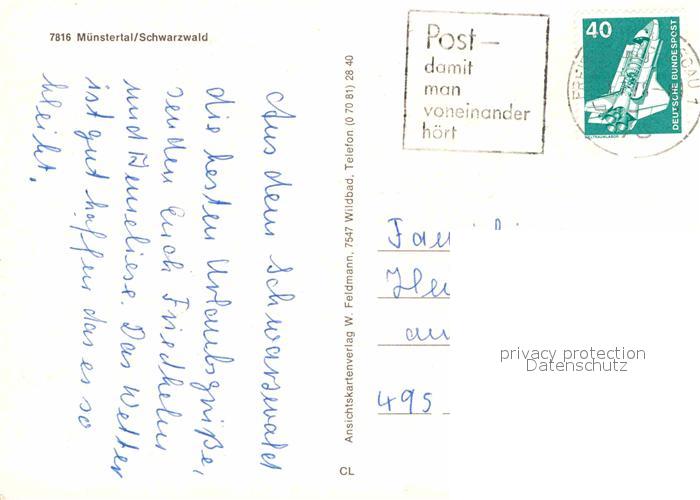 7816 Münstertal/Schwarzwald
Aus dem Schwarzwald
die besten Urlaubsgrüße,
senden Euch Friedhelm
und Anneliese. Das Wetter
ist gut hoffen das es so
bleibt.
Ansichtskartenverlag W. Feldmann, 7547 Wildbad, Telefon (0 70 81) 28 40
CL
Post–
damit
man
voneinander
hört
40
DEUTSCHE BUNDESPOST
WELTRAUMLABOR
Fam
495
privacy protection
Datenschutz